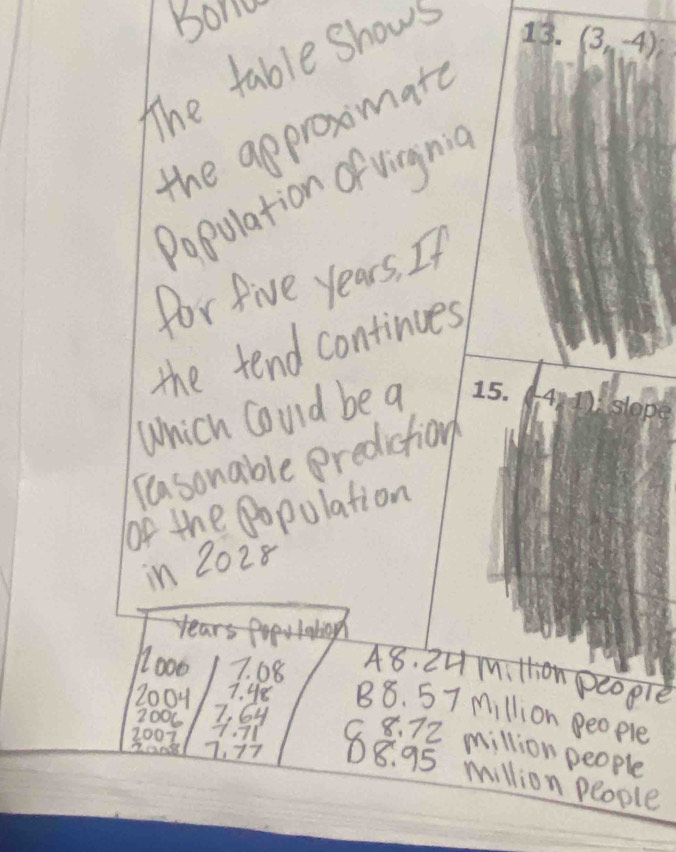 The table Shows
the approximate
Population of virginia
for five years. If
the tend continues
Which Could be a
reasonable prediction
of the population
in 2028
Years Population
2000 7.08
2004 7.48
2006 7.64
2007 7.71
2008 7.77
A 8.24 million people
B 8.57 Million people
C 8.72 million people
D 8.95 million people
13. (3, -4);
15. (-4, 1); slope